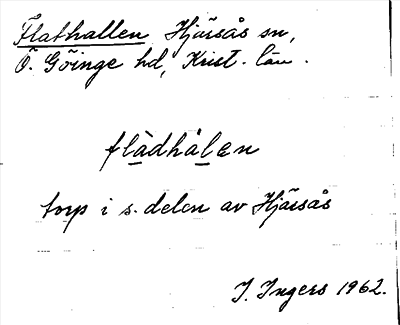 Flathallen Hjärsås sn,
Ö. Göinge hd, Krist. län.
flàdhål̲e̲n
torp i s. delen av Hjärsås
I. Ingers 1962.